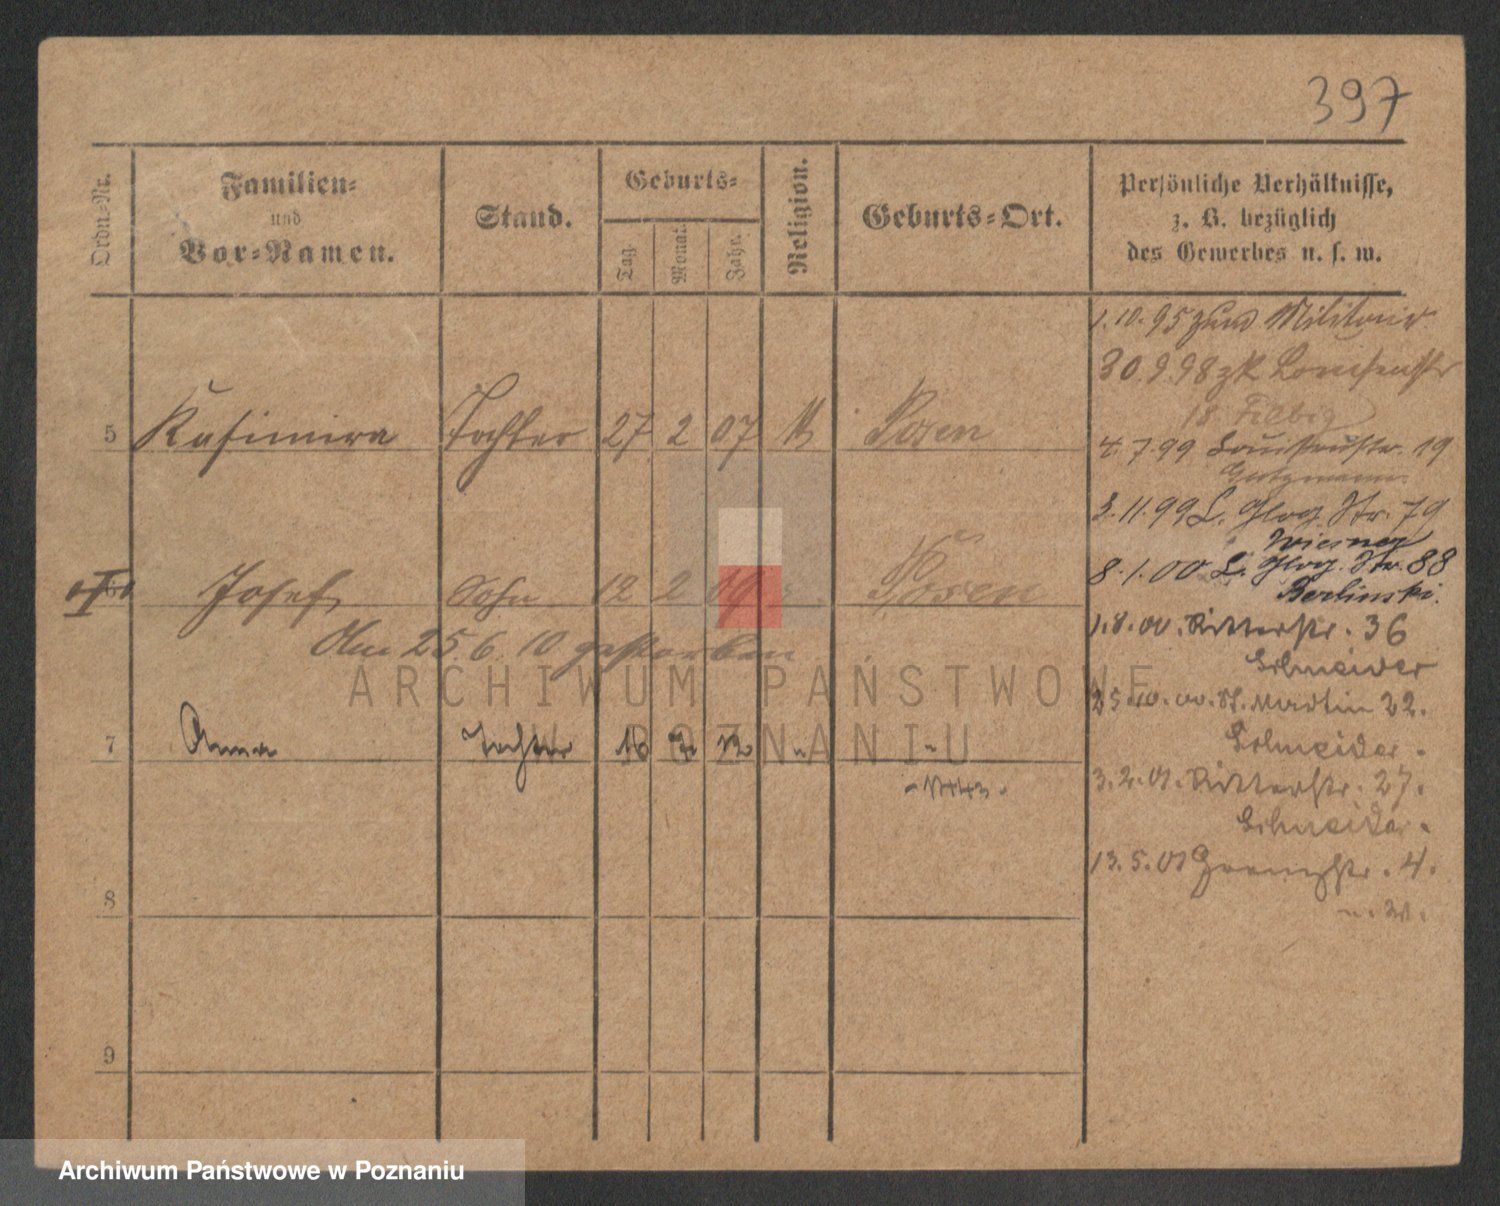 397
Ordn.-Nr.
Familien-
und
Vor-Namen.
Stand.
Geburts-
Tag.
Monat.
Jahr.
Religion.
Geburts-Ort.
Persönliche Verhältnisse,
z. B. bezüglich
des Gewerbes u. s. w.
5 Kasimira Tochter 27 2 07 Posen
6 Josef Sohn 12 2 09 Posen
Am 25.6.10 gestorben
7 Anna Tochter 16 7 12 " "
8
9
1.10.95 zum Militair
30.9.98 zk Louisenstr
18 Fillbig
4.7.99 Louisenstr. 19
3.11.99 L. Glog. Str. 79
Wiesner
8.1.00 L. Glog. Str. 88
Berlinski.
1.8.00. Ritterstr. 36
Schneider
25.10.00. St. Martin 22.
Schneider.
3.2.01. Ritterstr. 27.
Schneider.
13.5.01 Grenzstr. 4.
ARCHIWUM PAŃSTWOWE
W POZNANIU
Archiwum Państwowe w Poznaniu